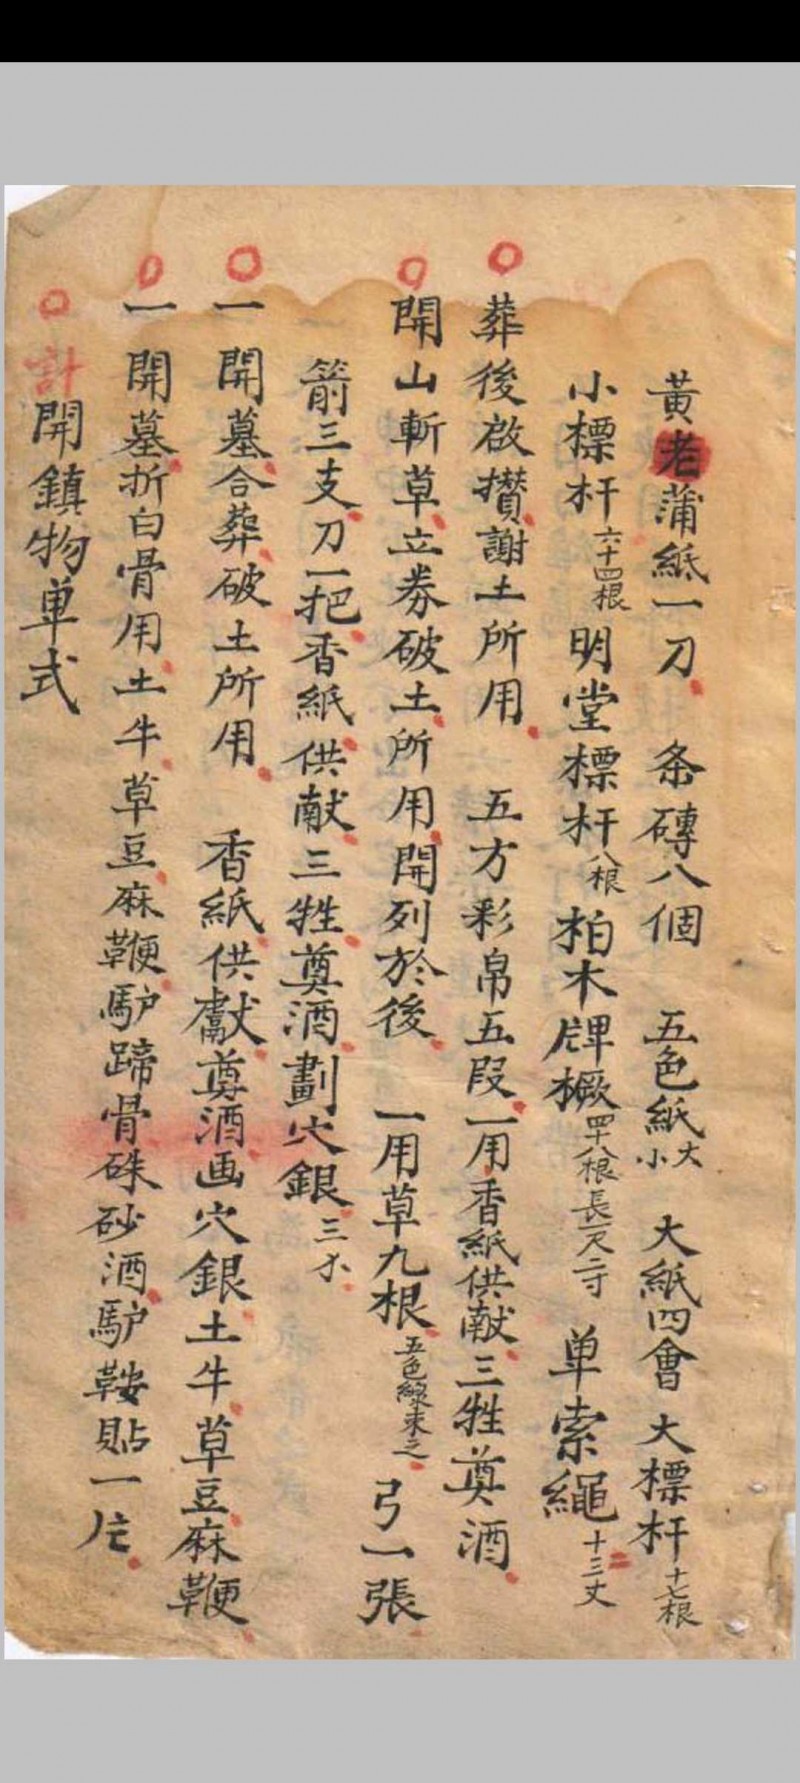 黃老蒲紙一刀 条磚八個 五色紙大小 大紙四會 大標杆十七根
小標杆六十四根 明堂標杆八根 柏木牌橛四十八根長一尺二寸 单索繩十三丈
葬後啟攢謝土所用 五方彩帛五段 一用香紙供献三牲奠酒
開山斬草立券破土所用開列於後 一用草九根五色線束之 弓一張
箭三支刀一把香紙供献三牲奠酒劃穴銀三
一開墓合葬破土所用 香紙供獻奠酒画穴銀土牛草豆麻鞭
一開墓折白骨用土牛草豆麻鞭馿蹄骨硃砂酒馿鞍貼一片
計開鎮物单式